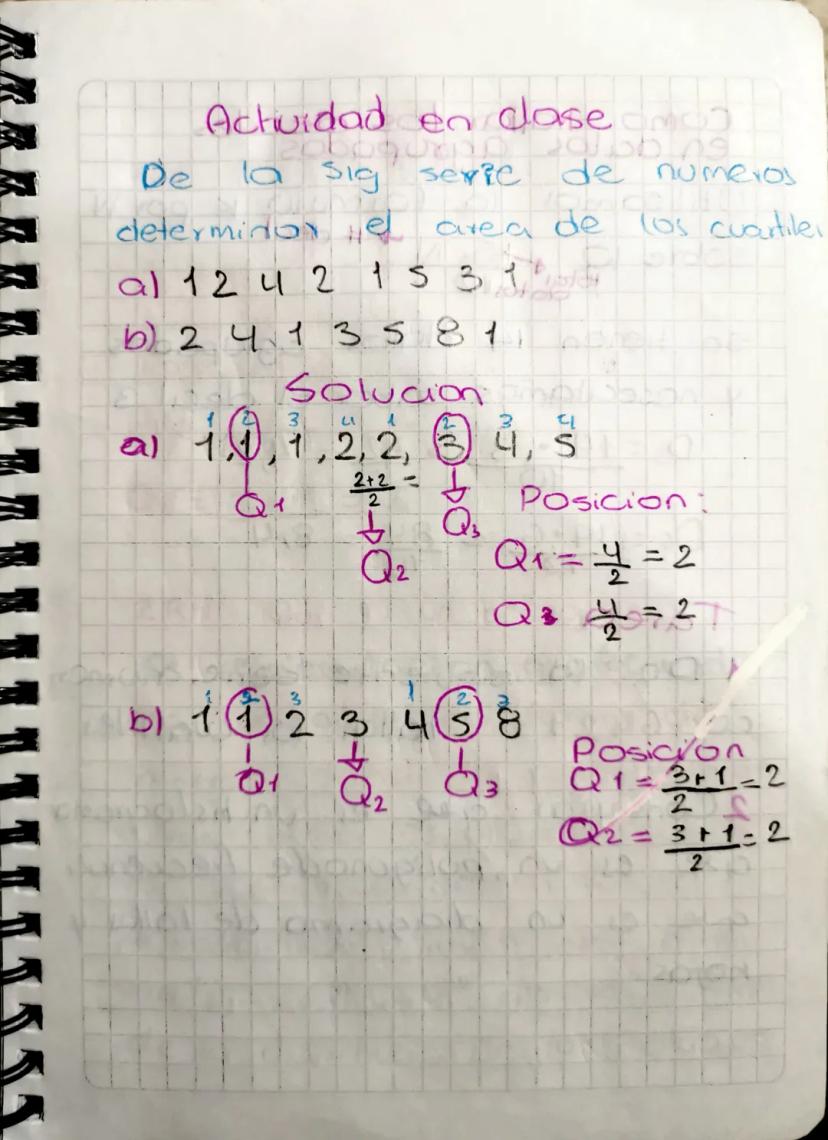 Actividad en clase
De la sig serie de numeros
determinar el area de los cuartiles
a) 1 2 4 2 1 5 3 1
b) 2 4 1 3 5 8 1
Solucion
1 2 3 4 1 2 3 4
a) 1, 1, 1, 2, 2, 3 4, 5
2+2/2 =
Q1
Q2
Q3
Posicion:
Q1 = 4/2 = 2
Q3 4/2 = 2
1 2 3 1 2 3
b) 1 1 2 3 4 5 8
Q1 Q2 Q3
Posicion
Q1 = 3+1/2 = 2
Q2 = 3+1/2 = 2